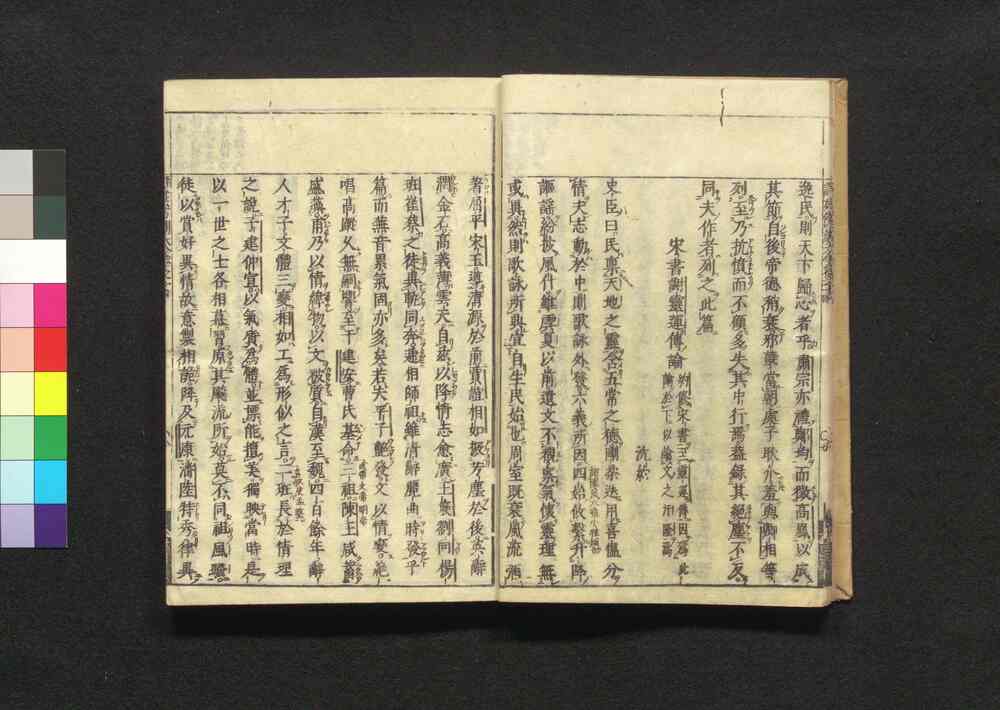 逸民則天下歸心者乎肅宗亦禮鄭均而徵高鳳以成
其節自後帝德稍衰邪孽當朝處子耿介羞與卿相等
列至乃抗憤而不顧多失其中行焉蓋錄其絕塵不反
同夫作者列之此篇
宋書謝靈運傳論
沈約
史臣曰民稟天地之靈含五常之德剛柔迭用喜慍分
情夫志動於中則歌詠外發六義所因四始攸繫升降
謳謠紛披風什雖虞夏以前遺文不覩稟氣懷靈理無
或異然則歌詠所興宜自生民始也周室既衰風流彌
著屈平宋玉導清源於前賈誼相如振芳塵於後英辭
潤金石高義薄雲天自茲以降情志愈廣王襃劉向楊
班崔蔡之徒異軌同奔遞相師祖雖清辭麗曲時發乎
篇而蕪音累氣固亦多矣若夫平子豔發文以情變絕
唱高蹤久無嗣響至于建安曹氏基命三祖陳王咸蓄
盛藻甫乃以情緯物以文被質自漢至魏四百餘年辭
人才子文體三變相如工為形似之言二班長於情理
之說子建仲宣以氣質為體並標能擅美獨映當時是
以一世之士各相慕習原其飈流所始莫不同祖風騷
徒以賞好異情故意製相詭降及元康潘陸特秀律異